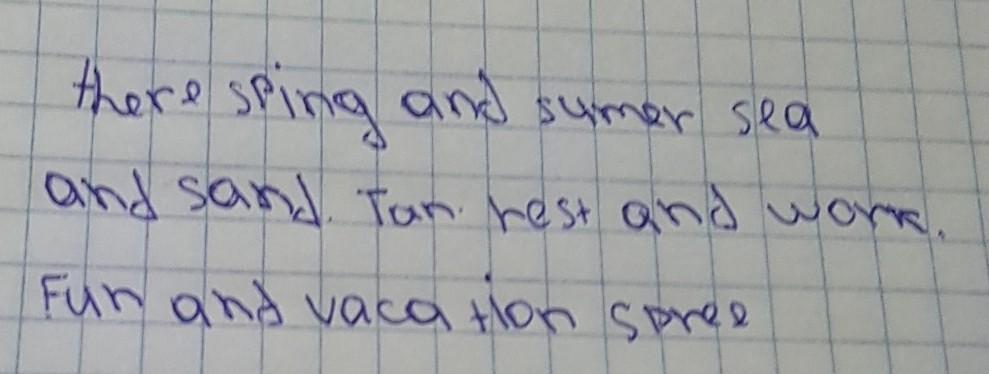 there sping and sumer sea
and sand. Tan. rest and work.
Fun and vacation spree